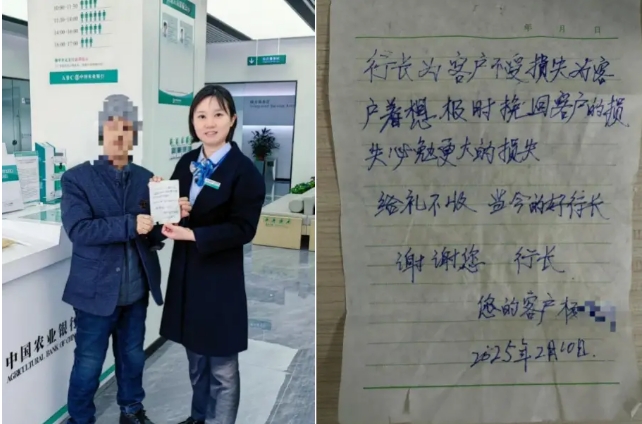 ABC 中国农业银行
中国农业银行
AGRICULTURAL BANK OF CHINA
年 月 日
行长为客户不受损失为客
户着想 极时挽回客户的损
失必勉更大的损失
给礼不收 当今的好行长
谢谢您 行长
您的客户
2025年2月10日.